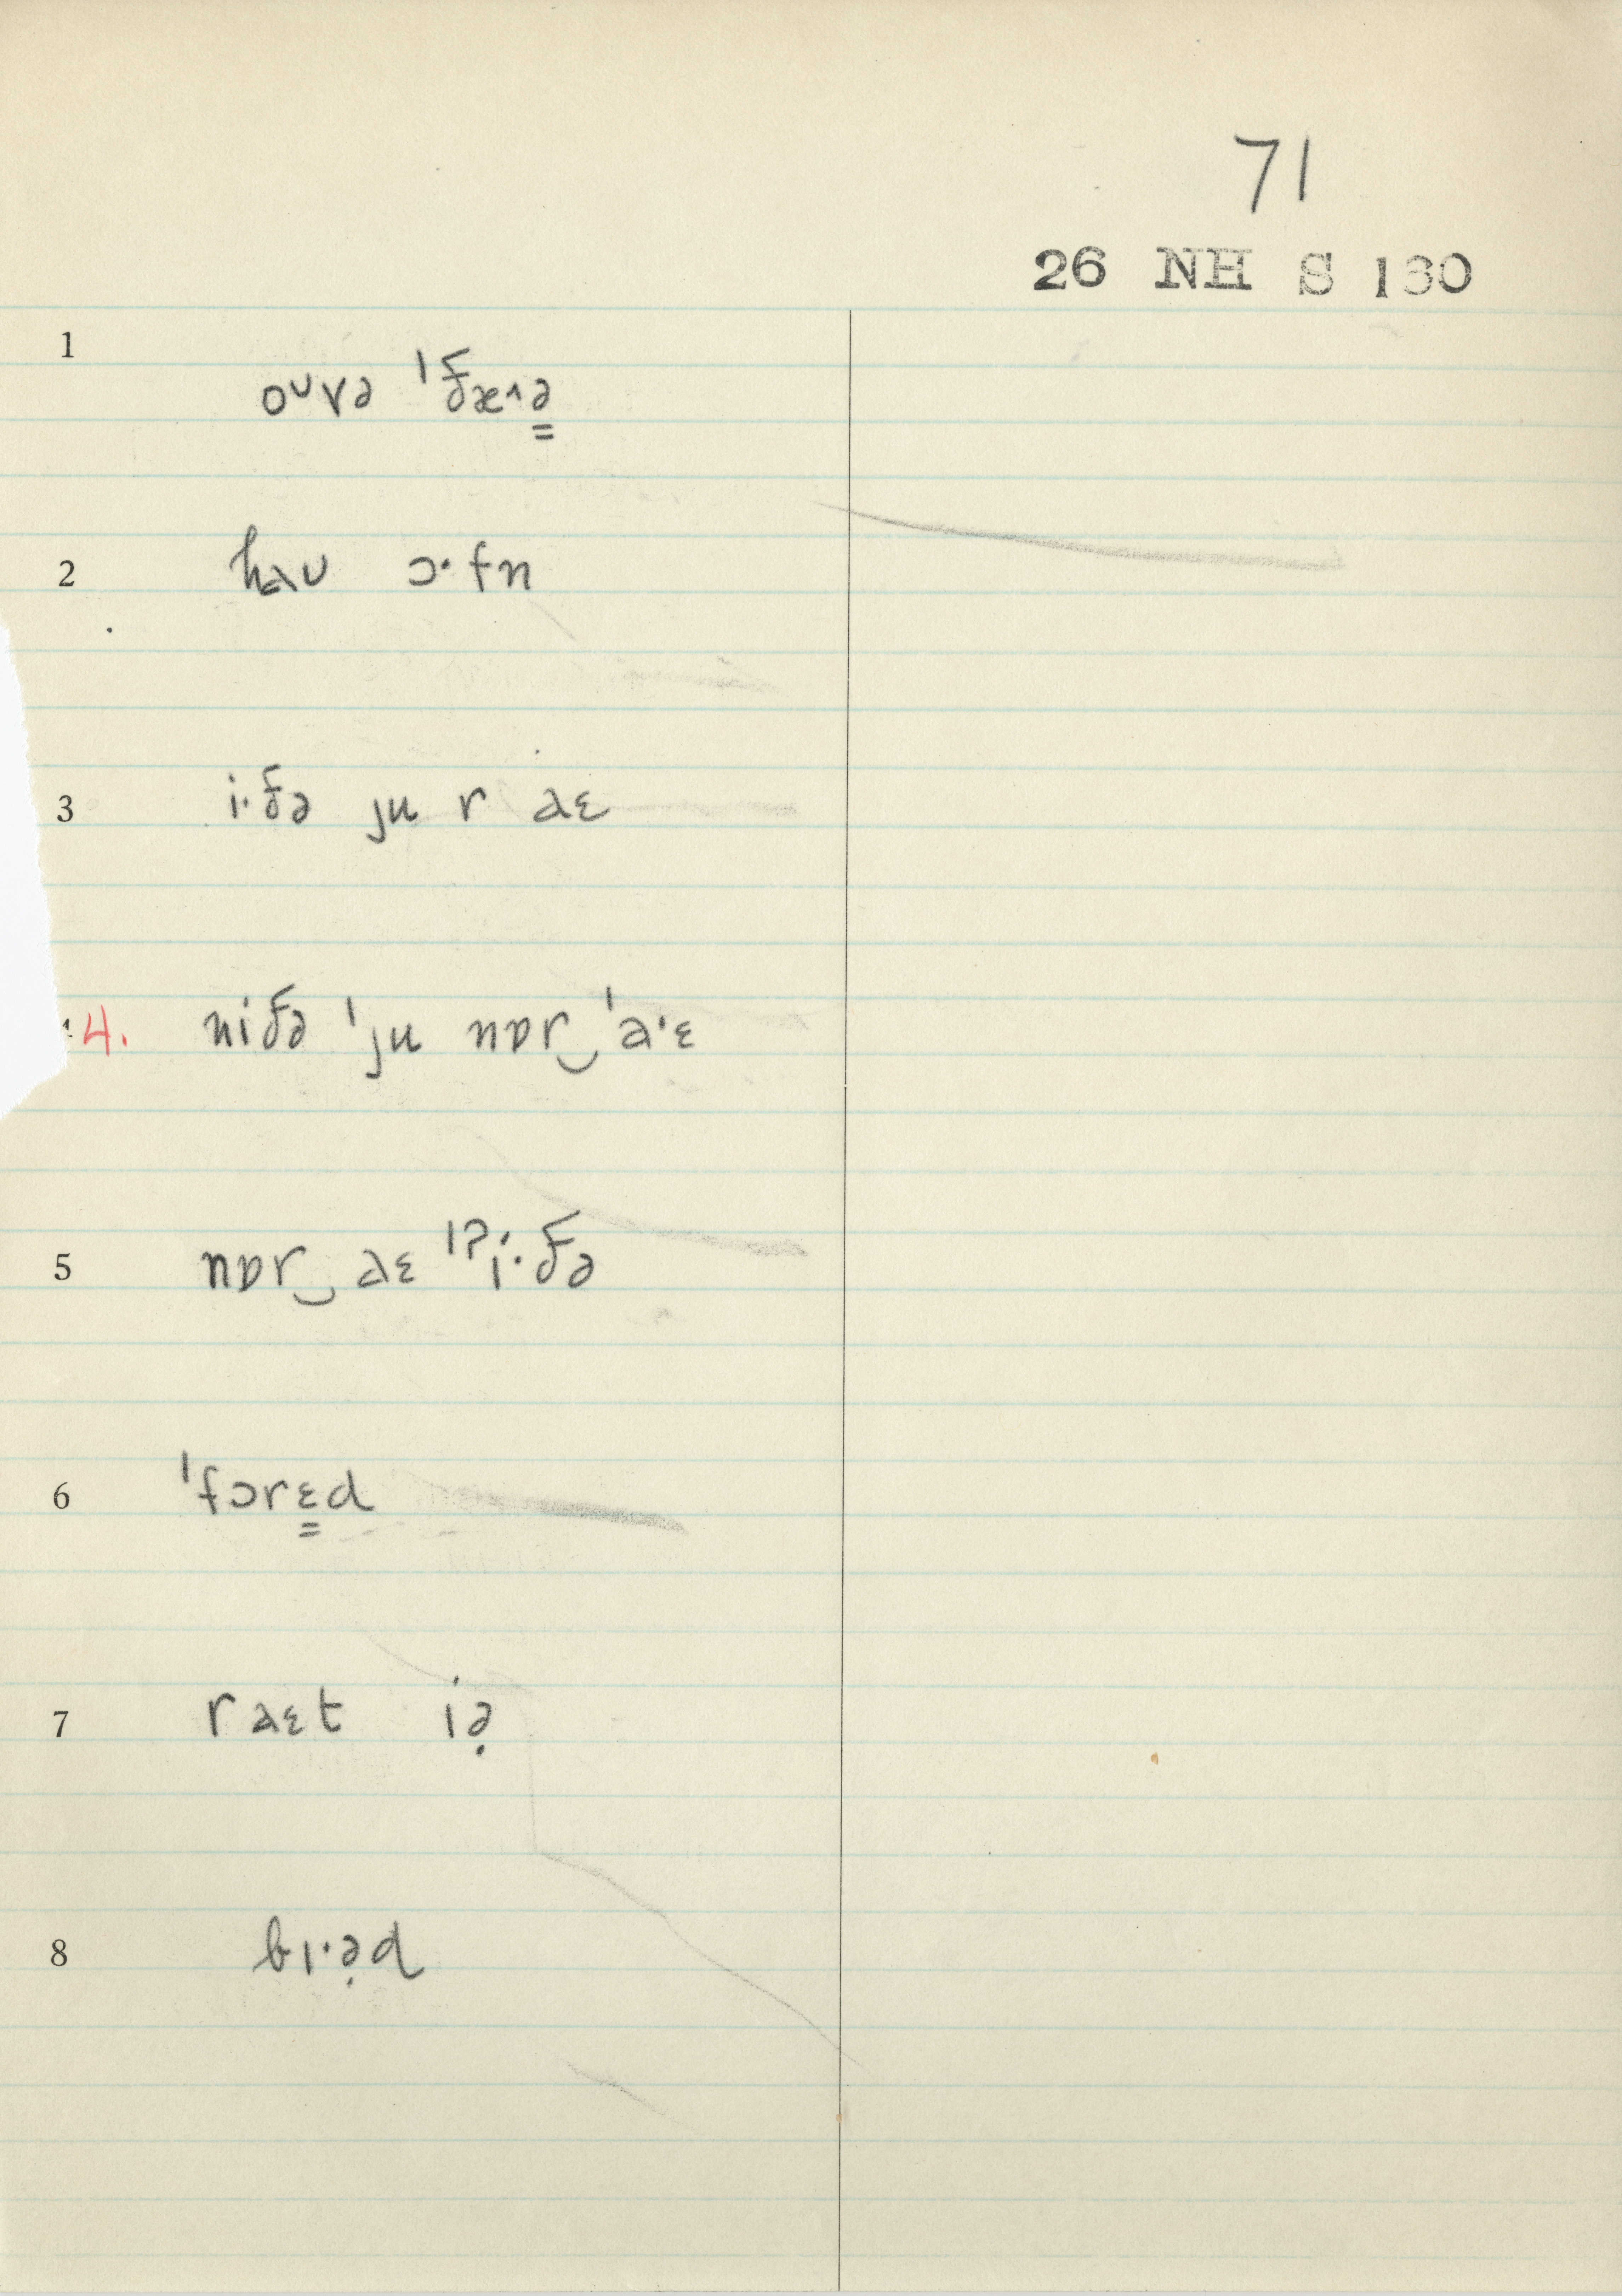 71
26 NH S 130
1 oᴜvə ˈðæ˄ə̳
2 haᴜ ɔ·fn
3 i·ðə ju r aɛ
4. niðə ˈju nɒr‿ˈa·ɛ
5 nɒr‿aɛ ˈʔi·ðə
6 ˈfɔrɛ̳d
7 raɛt iə̣
8 bɪ·ə̣d